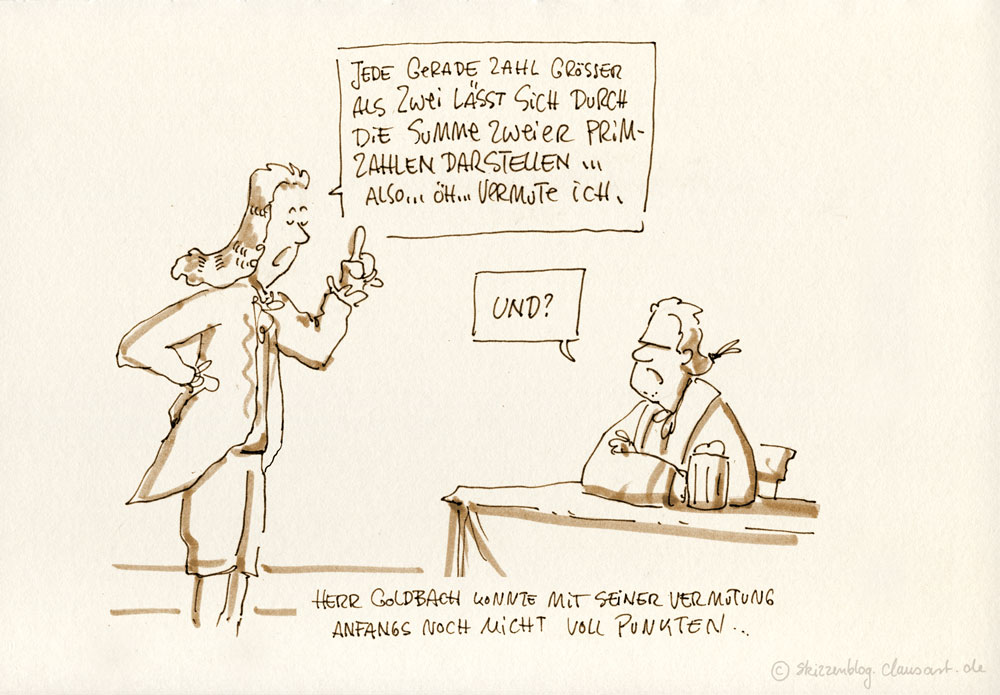 JEDE GERADE ZAHL GRÖSSER
ALS ZWEI LÄSST SICH DURCH
DIE SUMME ZWEIER PRIM-
ZAHLEN DARSTELLEN...
ALSO... ÖH... VERMUTE ICH.
UND?
HERR GOLDBACH KONNTE MIT SEINER VERMUTUNG
ANFANGS NOCH NICHT VOLL PUNKTEN...
© skizzenblog.clausast.de